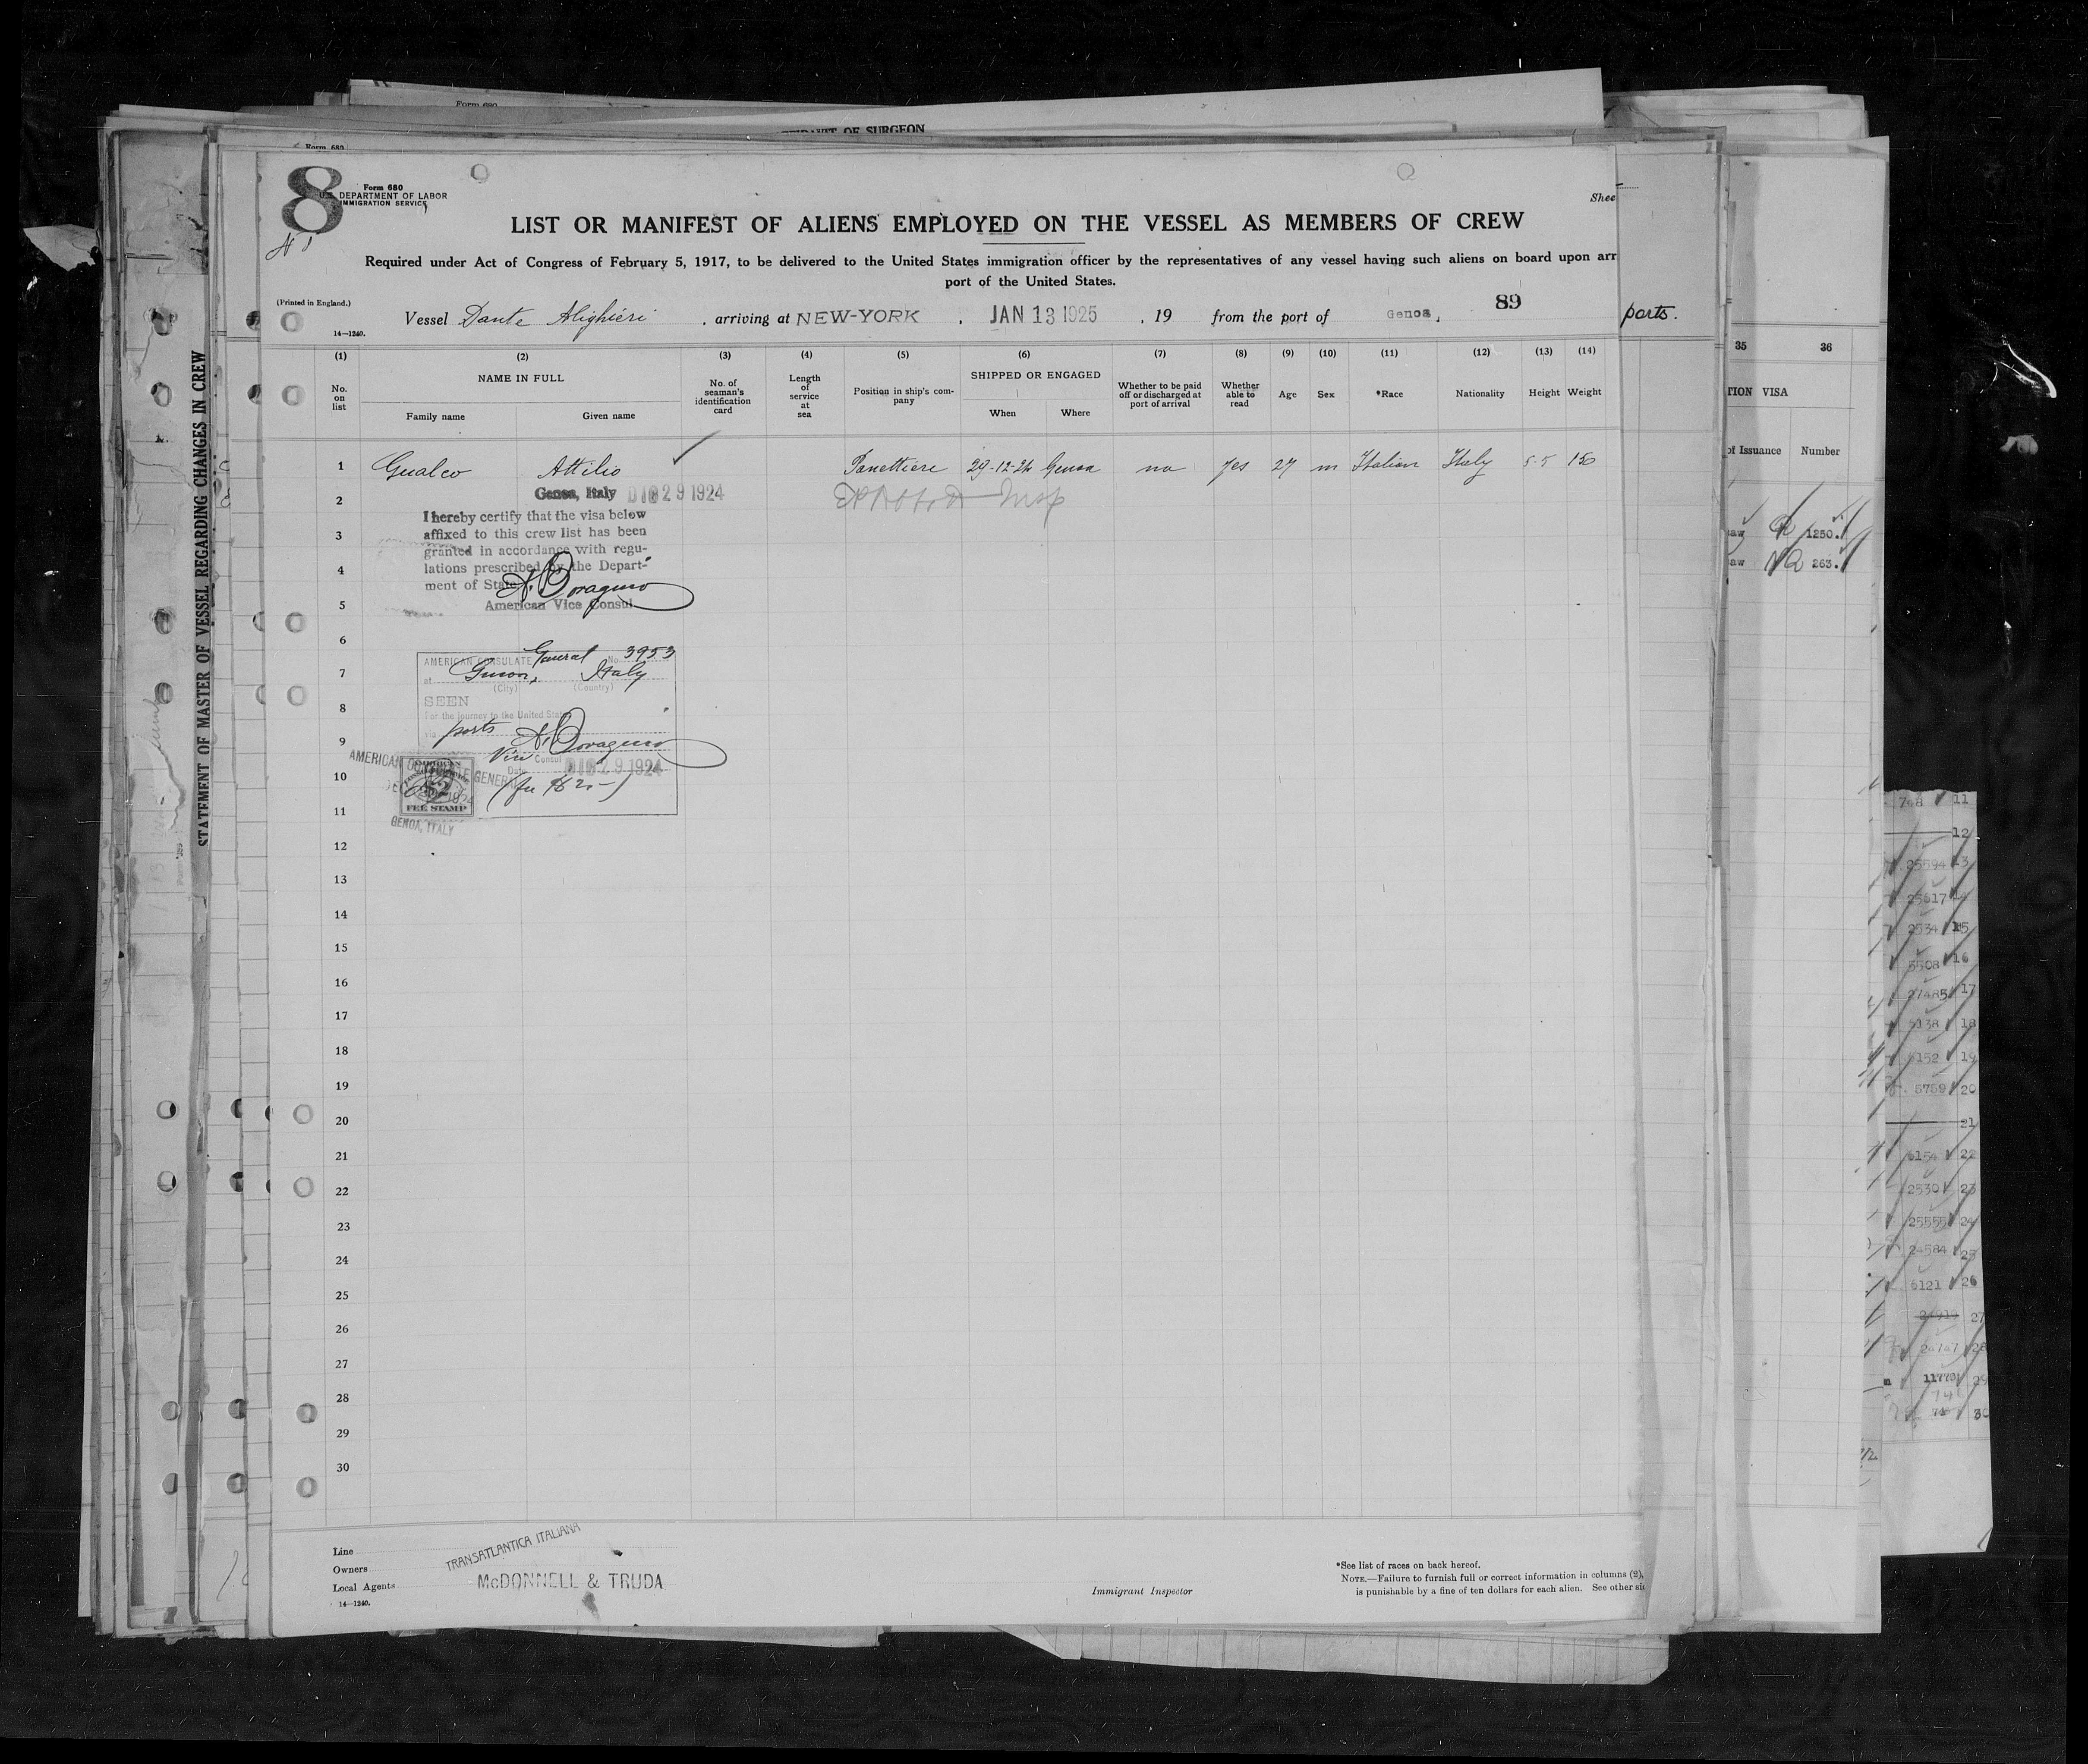 Form 680
AFFIDAVIT OF SURGEON
Form 680
8
Form 680
U.S. DEPARTMENT OF LABOR
IMMIGRATION SERVICE
Shee
LIST OR MANIFEST OF ALIENS EMPLOYED ON THE VESSEL AS MEMBERS OF CREW
Required under Act of Congress of February 5, 1917, to be delivered to the United States immigration officer by the representatives of any vessel having such aliens on board upon arr
port of the United States.
(Printed in England.)
14—1240.
Vessel Dante Alighieri , arriving at NEW-YORK , JAN 13 1925 , 19 from the port of Genoa, 89
ports.
(1) (2) (3) (4) (5) (6) (7) (8) (9) (10) (11) (12) (13) (14)
No. on list
NAME IN FULL
Family name Given name
No. of seaman's identification card
Length of service at sea
Position in ship's company
SHIPPED OR ENGAGED
When Where
Whether to be paid off or discharged at port of arrival
Whether able to read
Age Sex *Race Nationality Height Weight
1 Gualco Attilio Panettiere 29-12-24 Genoa no yes 27 m Italian Italy 5-5 150
2
Genoa, Italy DEC 29 1924
I hereby certify that the visa below
3
affixed to this crew list has been
granted in accordance with regu-
4
lations prescribed by the Depart-
ment of State
5
American Vice Consul
6
AMERICAN CONSULATE General No. 3953
7
at Genoa, Italy
(City) (Country)
8
SEEN
For the journey to the United States
via ports
9
Vice Consul
Date DEC 29 1924
AMERICAN CONSULATE GENERAL
10
(fee $2.-)
AMERICAN
FEE STAMP
11
GENOA, ITALY
12
13
14
15
16
17
18
19
20
21
22
23
24
25
26
27
28
29
30
Line
TRANSATLANTICA ITALIANA
Owners
Local Agents McDONNELL & TRUDA
14—1240.
Immigrant Inspector
*See list of races on back hereof.
NOTE.—Failure to furnish full or correct information in columns (2),
is punishable by a fine of ten dollars for each alien. See other si
STATEMENT OF MASTER OF VESSEL REGARDING CHANGES IN CREW
35 36
TION VISA
of Issuance Number
1250.
263.
748 11
12
25594 13
25617 14
2534 15
5508 16
27485 17
5138 18
6152 19
5759 20
21
6154 22
2530 23
25555 24
24584 25
6121 26
27
24747 28
11770 29
30